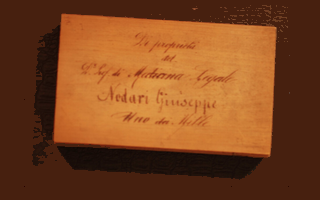 Di proprietà
del
D. Prof. di Medicina Legale
Nodari Giuseppe
Uno dei Mille